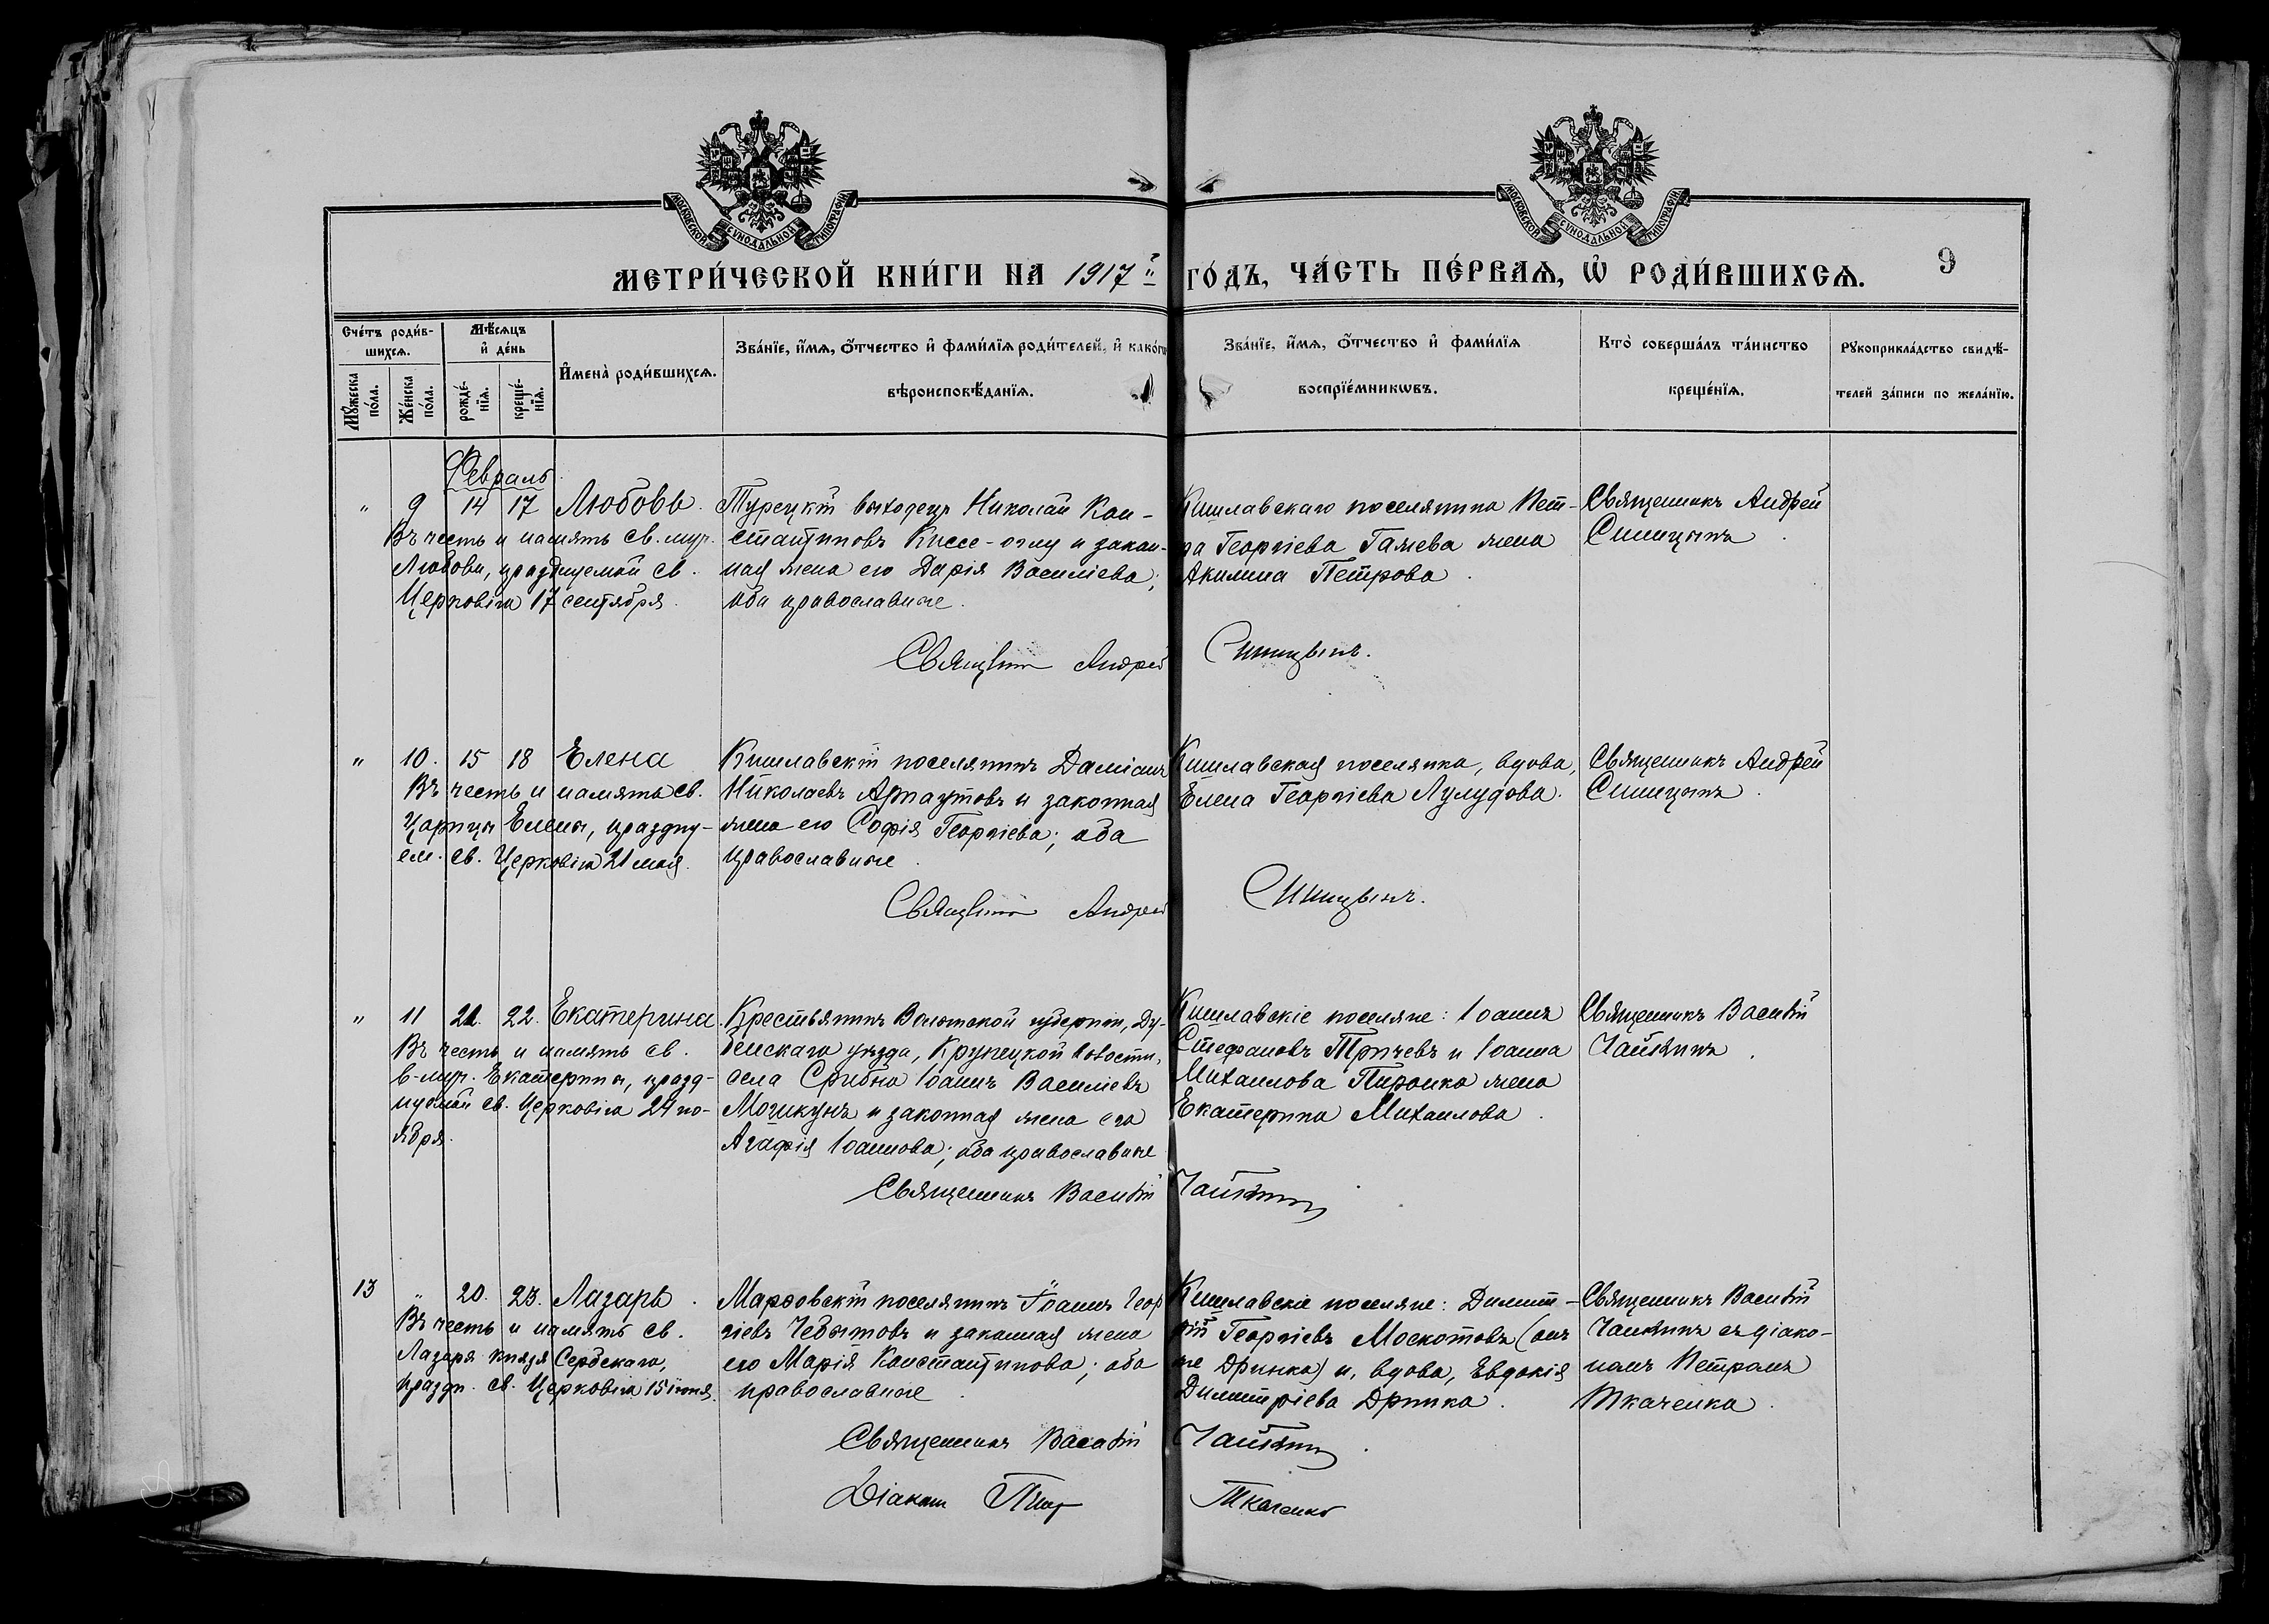 МОСКОВСКОЙ СѴНОДАЛЬНОЙ ТИПОГРАФІИ
МОСКОВСКОЙ СѴНОДАЛЬНОЙ ТИПОГРАФІИ
МЕТРИ́ЧЕСКОЙ КНИ́ГИ НА 1917й ГО́ДЪ, ЧА́СТЬ ПЕ́РВАѦ, Ѡ҆ РОДИ́ВШИХСѦ. 9
Сче́тъ роди́в-
шихсѧ.
Мꙋ́жеска по́ла.
Же́нска по́ла.
Мѣ́сѧцъ
и҆ де́нь
рожде́-
нїѧ.
креще́-
нїѧ.
И҆мена̀ роди́вшихсѧ.
Зва́нїе, и҆́мѧ, ѻ҆́тчество и҆ фами́лїѧ роди́телей, и҆ како́гѡ
вѣроисповѣ́данїѧ.
Зва́нїе, и҆́мѧ, ѻ҆́тчество и҆ фами́лїѧ
воспрїе́мникѡвъ.
Кто̀ соверша́лъ та́инство
креще́нїѧ.
Рꙋкоприкла́дство свидѣ́-
телей за́писи по жела́нїю.
Февраль
" 9 14 17 Любовь.
Въ честь и память св. муч.
Любови, празднуемой св.
Церковію 17 сентября.
Турецкій выходецъ Николай Кон-
стантиновъ Киссе-оглу и закон-
ная жена его Дарія Василіева;
оба православные.
Кишлавскаго поселянина Пет-
ра Георгіева Гамева жена
Акилина Петрова.
Священникъ Андрей
Синицынъ.
Священникъ Андрей Синицынъ.
" 10. 15 18 Елена
Въ честь и память св.
Царицы Елены, праздну-
ем. св. Церковію 21 мая.
Кишлавскій поселянинъ Даміанъ
Николаевъ Арнаутовъ и законная
жена его Софія Георгіева; оба
православные.
Кишлавская поселянка, вдова,
Елена Георгіева Лулудова.
Священникъ Андрей
Синицынъ.
Священникъ Андрей Синицынъ.
" 11 21. 22. Екатерина.
Въ честь и память св.
в-муч. Екатерины, празд-
нуемой св. Церковію 24 но-
ября.
Крестьянинъ Волынской губерніи, Ду-
бенскаго уѣзда, Крупецкой волости,
села Срибно Іоаннъ Василіевъ
Мочикунъ и законная жена его
Агафія Іоаннова; оба православные.
Кишлавскіе поселяне: Іоаннъ
Стефановъ Тричевъ и Іоанна
Михаилова Пиронко жена
Екатерина Михаилова.
Священникъ Василій
Чайкинъ.
Священникъ Василій Чайкинъ
13 " 20. 23. Лазарь.
Въ честь и память св.
Лазаря князя Сербскаго,
праздн. св. Церковію 15 іюня.
Марфовскій поселянинъ Іоаннъ Геор
гіевъ Чебытовъ и законная жена
его Марія Константинова; оба
православные.
Кишлавскіе поселяне: Димит-
рій Георгіевъ Москотовъ (онъ
же Дринка) и, вдова, Евдокія
Димитріева Дринка.
Священникъ Василій
Чайкинъ съ діако-
номъ Петромъ
Ткаченко.
Священникъ Василій Чайкинъ.
Діаконъ Петр Ткаченко